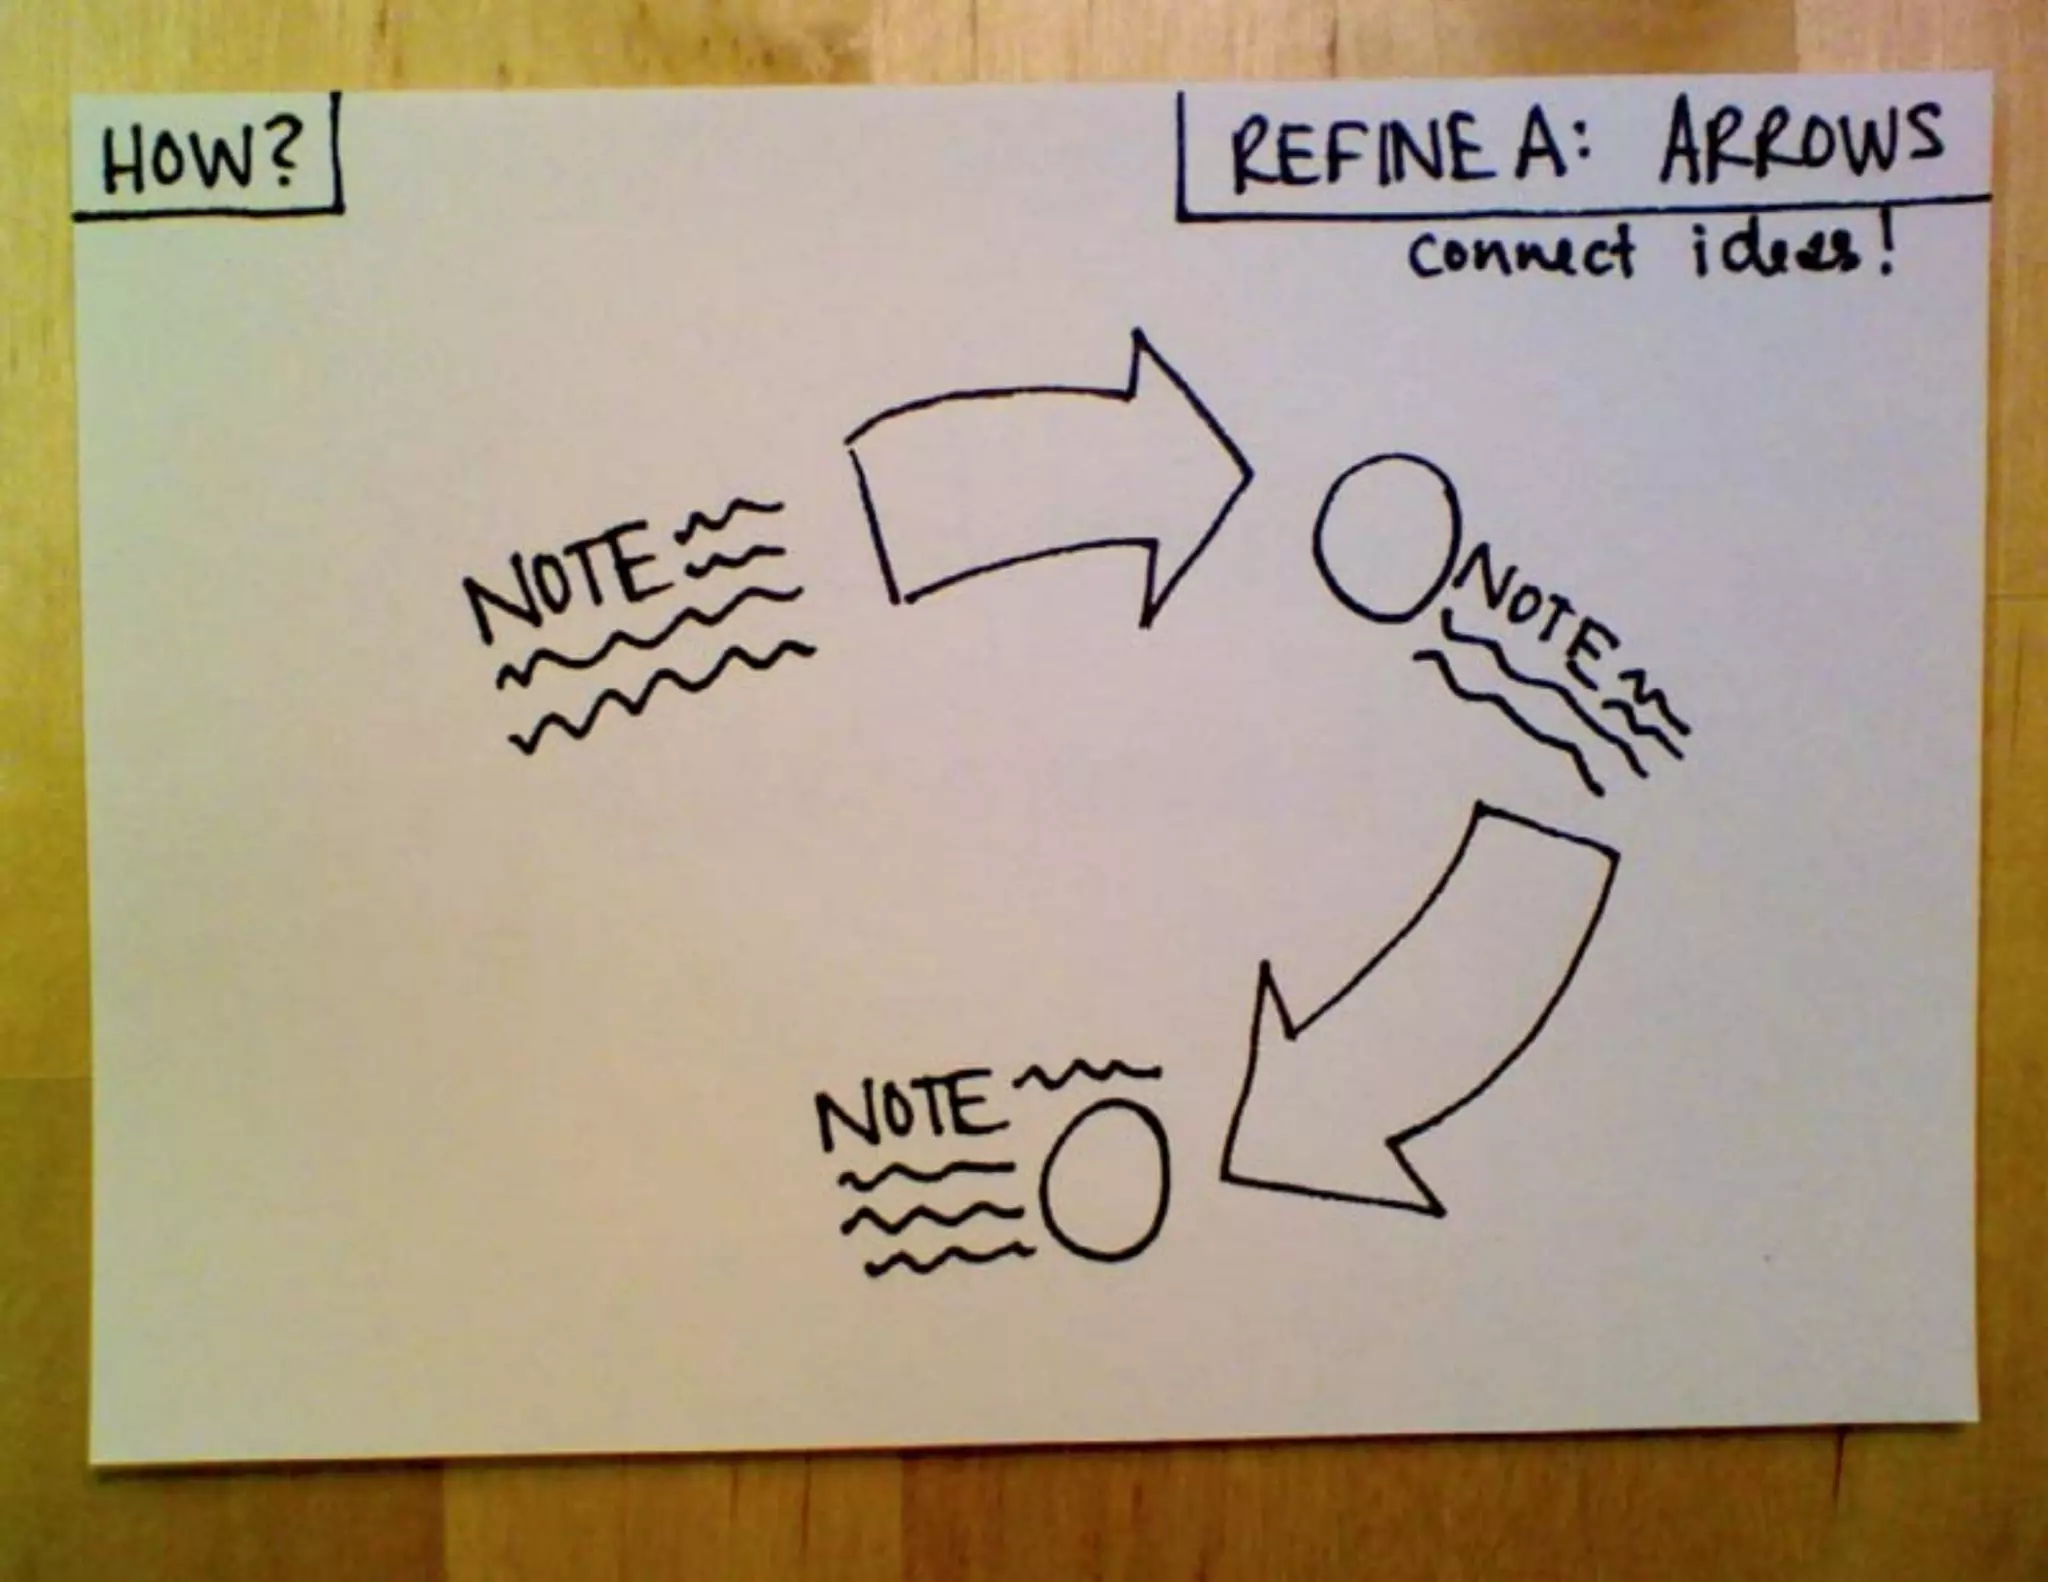 HOW?
REFINE A: ARROWS
connect ideas!
NOTE
NOTE
NOTE